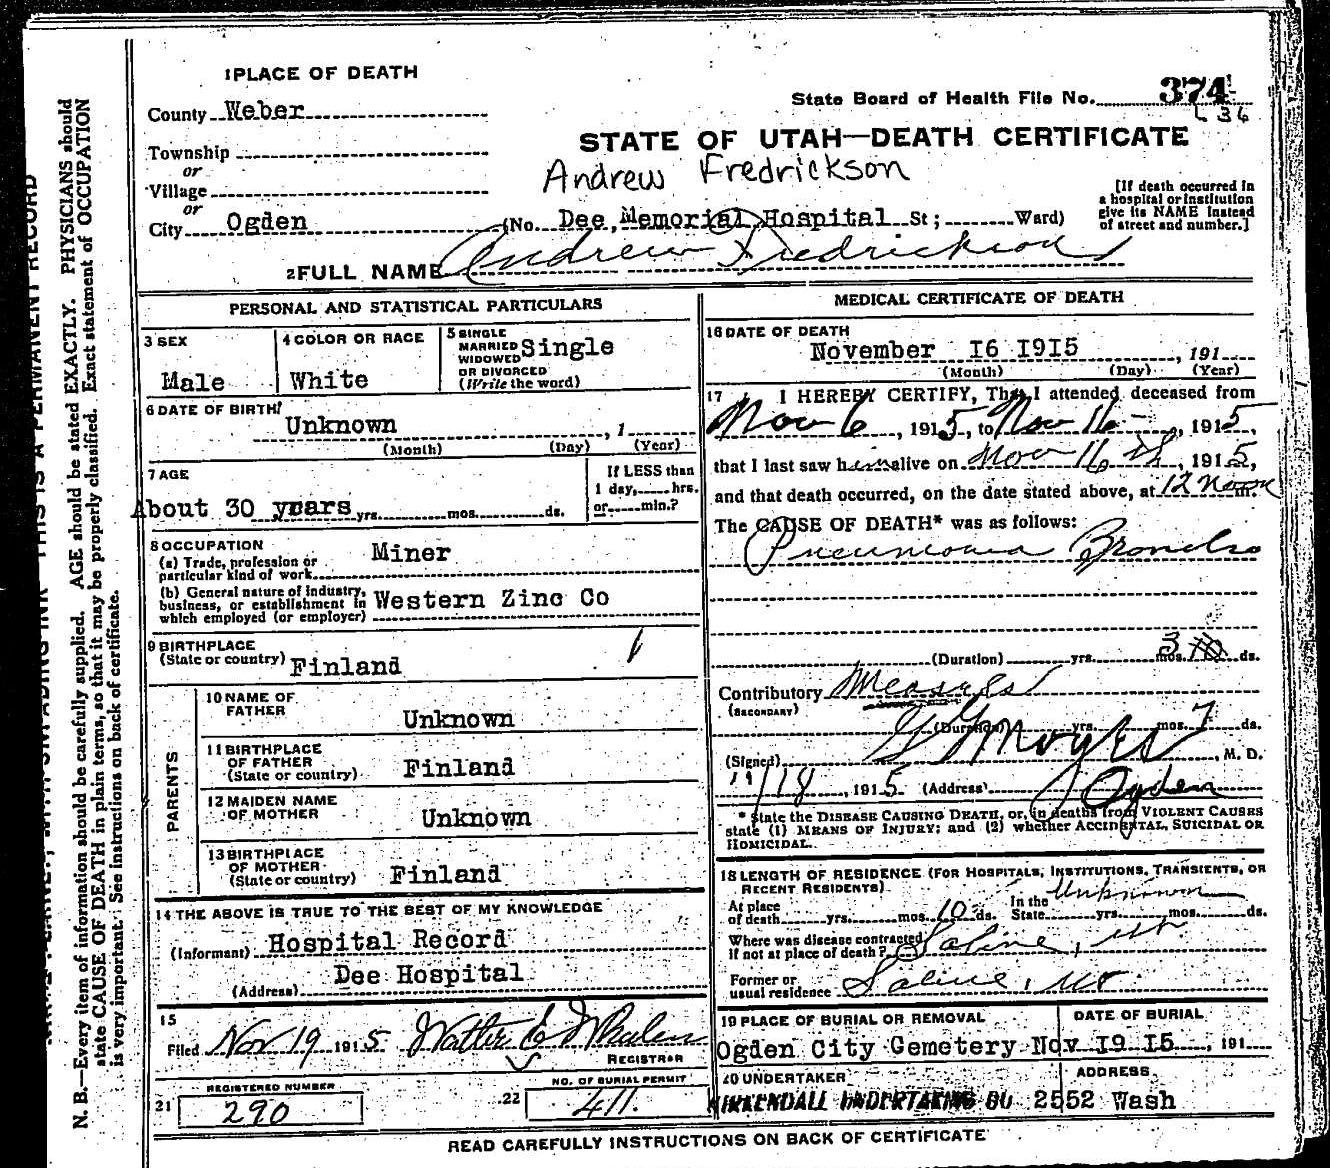 1 PLACE OF DEATH
County Weber
Township
or
Village
or
City Ogden (No. Dee Memorial Hospital St; Ward)
State Board of Health File No. 374
L 36
STATE OF UTAH—DEATH CERTIFICATE
Andrew Fredrickson
[If death occurred in
a hospital or institution
give its NAME instead
of street and number.]
2 FULL NAME Andrew Fredrickson
PERSONAL AND STATISTICAL PARTICULARS
3 SEX
Male
4 COLOR OR RACE
White
5 SINGLE
MARRIED
WIDOWED
OR DIVORCED
(Write the word)
Single
6 DATE OF BIRTH
Unknown , 1
(Month) (Day) (Year)
7 AGE
About 30 years yrs. mos. ds.
If LESS than
1 day, hrs.
or min.?
8 OCCUPATION
(a) Trade, profession or
particular kind of work
Miner
(b) General nature of industry,
business, or establishment in
which employed (or employer)
Western Zinc Co
9 BIRTHPLACE
(State or country) Finland
PARENTS
10 NAME OF
FATHER
Unknown
11 BIRTHPLACE
OF FATHER
(State or country)
Finland
12 MAIDEN NAME
OF MOTHER
Unknown
13 BIRTHPLACE
OF MOTHER
(State or country)
Finland
14 THE ABOVE IS TRUE TO THE BEST OF MY KNOWLEDGE
(Informant) Hospital Record
(Address) Dee Hospital
15
Filed Nov 19 1915 Walter E Whalen
REGISTRAR
REGISTERED NUMBER
21 290
NO. OF BURIAL PERMIT
22 411.
MEDICAL CERTIFICATE OF DEATH
16 DATE OF DEATH
November 16 1915 , 191
(Month) (Day) (Year)
17 I HEREBY CERTIFY, That I attended deceased from
Nov 6 , 1915, to Nov 16 , 1915,
that I last saw him alive on Nov 16th , 1915,
and that death occurred, on the date stated above, at 12 Noon m.
The CAUSE OF DEATH* was as follows:
Pneumonia Broncho
(Duration) yrs. mos. 3 ds.
Contributory Measles
(SECONDARY)
(Duration) yrs. mos. 7 ds.
(Signed) Moyes , M. D.
11/18 , 1915 (Address) Ogden
* State the DISEASE CAUSING DEATH, or, in deaths from VIOLENT CAUSES
state (1) MEANS OF INJURY; and (2) whether ACCIDENTAL, SUICIDAL OR
HOMICIDAL.
18 LENGTH OF RESIDENCE (FOR HOSPITALS, INSTITUTIONS, TRANSIENTS, OR
RECENT RESIDENTS)
At place
of death yrs. mos. 10 ds.
In the
State Unknown yrs. mos. ds.
Where was disease contracted
if not at place of death? Saline, Ut
Former or
usual residence Saline, Ut
19 PLACE OF BURIAL OR REMOVAL
DATE OF BURIAL
Ogden City Cemetery Nov 19 15 , 191
20 UNDERTAKER
ADDRESS
KIRKENDALL UNDERTAKING CO 2552 Wash
READ CAREFULLY INSTRUCTIONS ON BACK OF CERTIFICATE
N. B.—Every item of information should be carefully supplied. AGE should be stated EXACTLY. PHYSICIANS should
state CAUSE OF DEATH in plain terms, so that it may be properly classified. Exact statement of OCCUPATION
is very important. See instructions on back of certificate.
THIS IS A PERMANENT RECORD